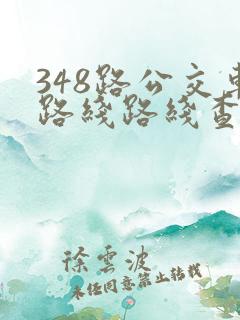 348路公交车
路线路线查
徐云波
未经同意禁止转载